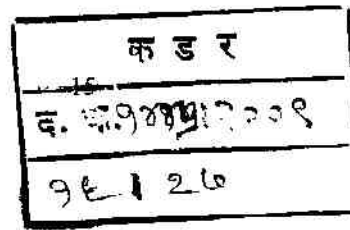 क ड र
द. क्र. १४४५/२००९
१६ / २७